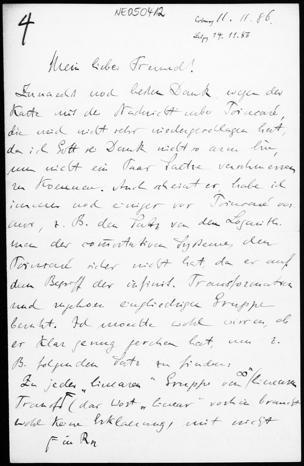 4
NE050412
11.11.86.
14.11.86
Mein lieber Freund!
Zunächst noch besten Dank wegen der
Karte mit der Nachricht über Poincaré,
die mich nicht sehr niedergeschlagen hat,
da ich Gott sei Dank nicht so arm bin,
um nicht ein Paar Sätze verschmerzen
zu können. Auch scheint es, habe ich
immer noch einiges vor Poincaré vor-
aus, z. B. den Satz von den
der Systeme, den
Poincaré sicher nicht hat, da er auf
dem Begriff der infinit. Transformation
und eingliedrigen Gruppe
beruht. Ich möchte wohl wissen, ob
er klar genug gesehen hat, um z.
B. folgenden Satz zu finden:
Zu jeder "linearen" Gruppe von linearen
Transf. (das Wort "linear" vorhin braucht
wohl keine Erklärung) mit nicht
in Rn